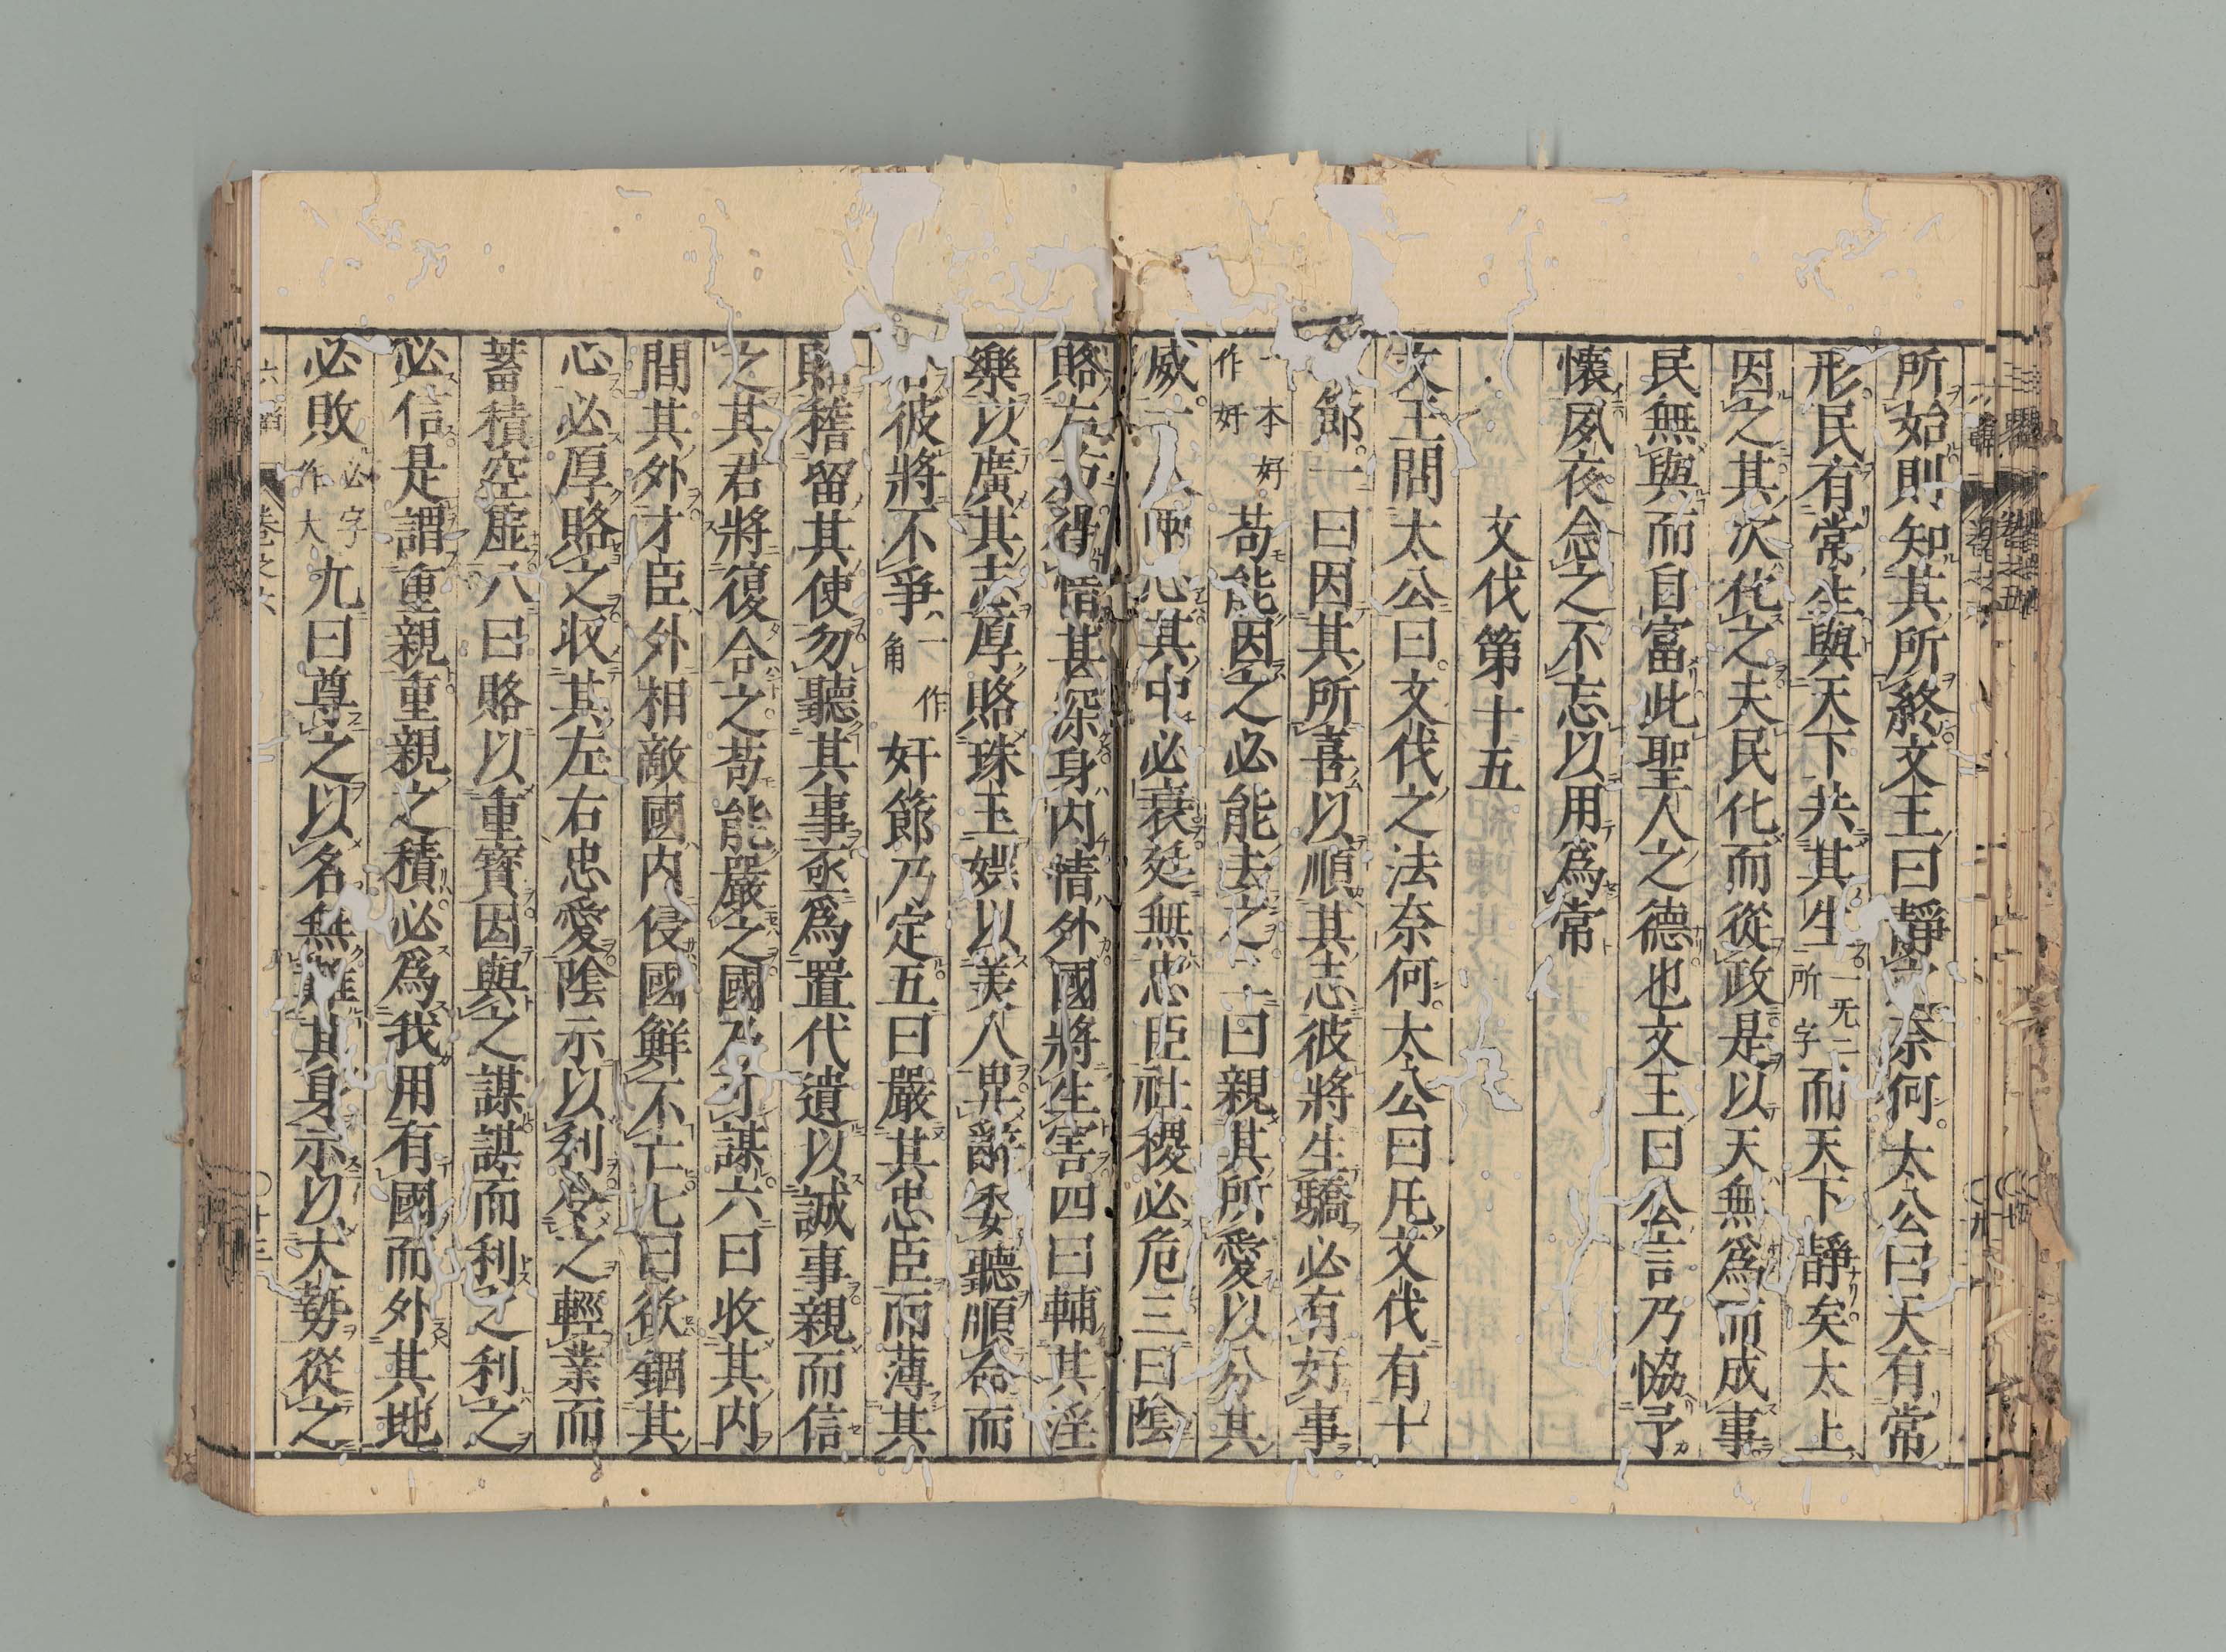 所始則知其所終文王曰靜奈何太公曰天有常
形民有常生與天下共其生一无二所字而天下靜矣太上
因之其次化之夫民化而從政是以天無爲而成事
民無與而自富此聖人之德也文王曰公言乃恊予
懷夙夜念之不忘以用爲常
文伐第十五
文王問太公曰文伐之法奈何太公曰凡文伐有十
節一曰因其所喜以順其志彼將生驕必有好事
一本好作奸苟能因之必能去之二曰親其所愛以分其
威一人兩心其中必衰廷無忠臣社稷必危三曰陰
賂左右得情甚深身内情外國將生害四曰輔其淫
樂以廣其志厚賂珠玉娛以美人卑辭委聽順命而
彼將不爭一作角奸節乃定五曰嚴其忠臣而薄其
賂稽留其使勿聽其事亟爲置代遺以誠事親而信
之其君將復合之苟能嚴之國乃可謀六曰收其内
間其外才臣外相敵國内侵國鮮不亡七曰欲錮其
心必厚賂之收其左右忠愛陰示以利令之輕業而
蓄積空虛八曰賂以重寶因與之謀謀而利之利之
必信是謂重親重親之積必爲我用有國而外其地
必敗必字作大九曰尊之以名無難其身示以大勢從之
六韜 卷之六 〇十三